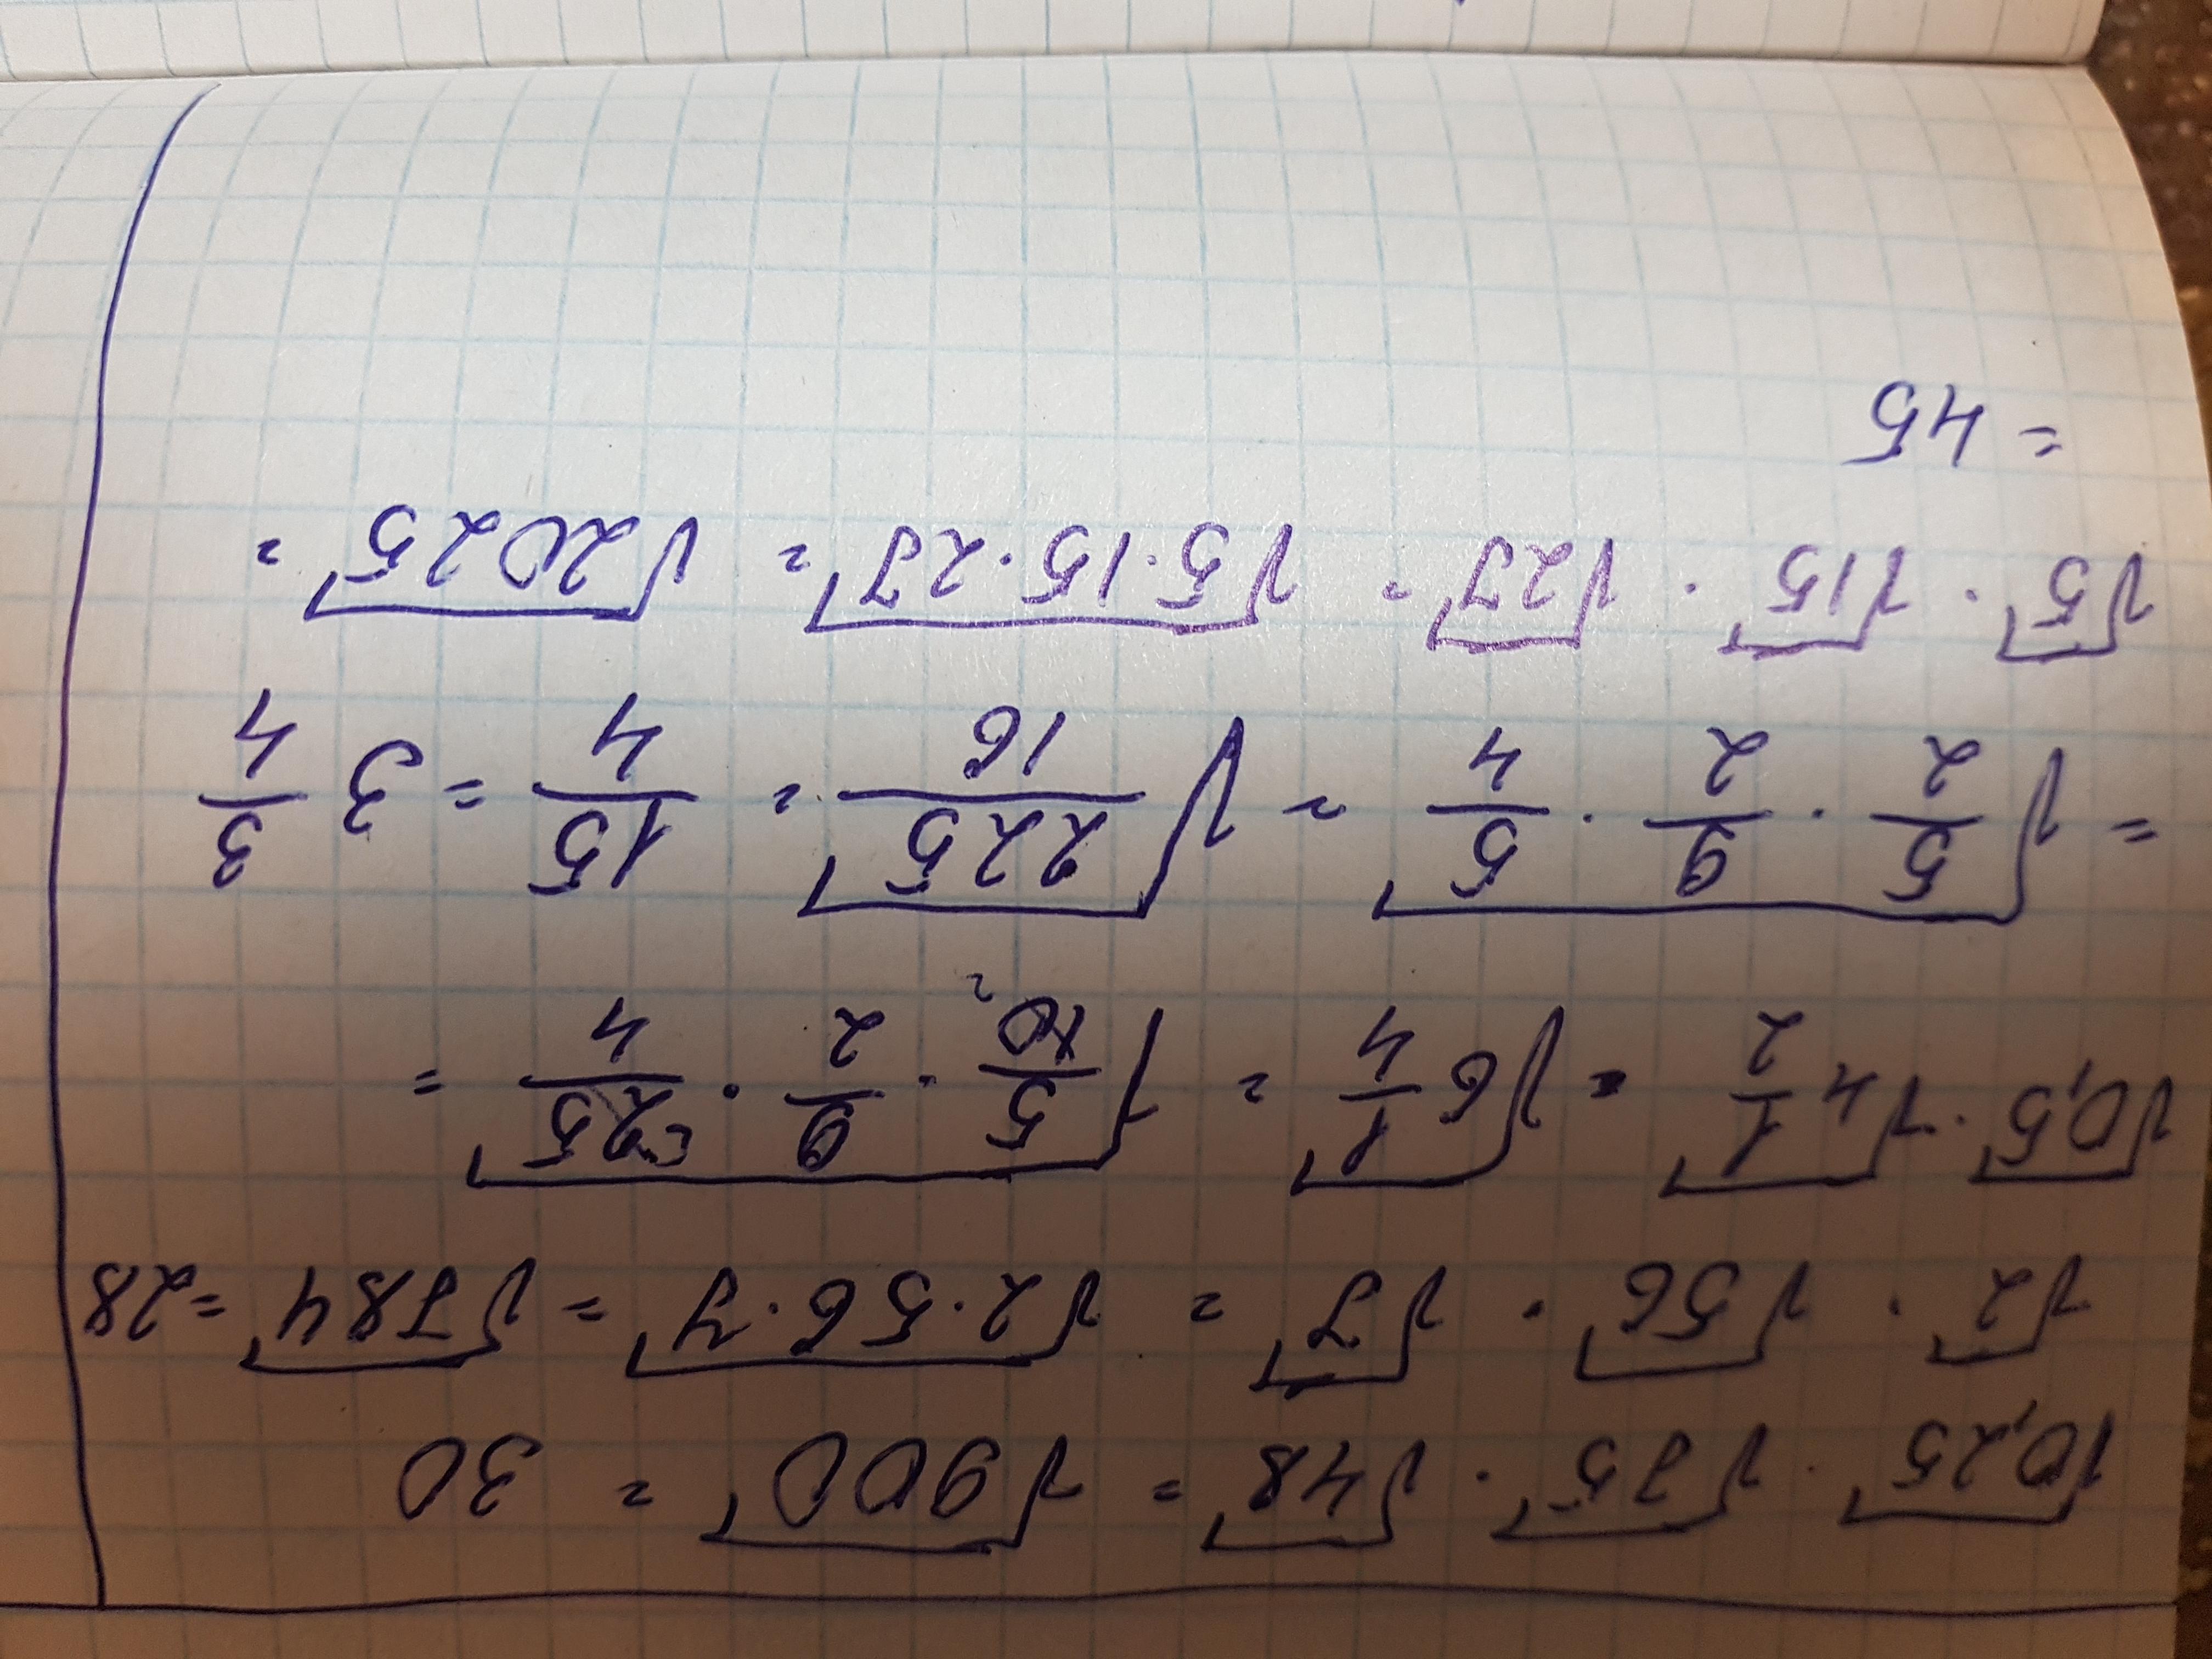 √0,25 · √75 · √48 = √900 = 30
√2 · √56 · √7 = √2·56·7 = √784 = 28
√0,5 · √4 1/2 = √6 1/4 = √5/10 2 · 9/2 · 25/4 =
= √5/2 · 9/2 · 5/4 = √225/16 = 15/4 = 3 3/4
√5 · √15 · √27 = √5·15·27 = √2025 =
= 45